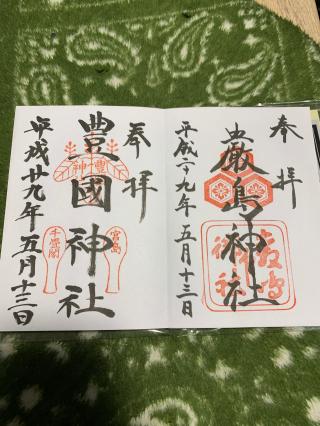 奉拝
嚴島神社
平成二十九年五月十三日
奉拝
豊國神社
宮島
千畳閣
平成廿九年五月十三日